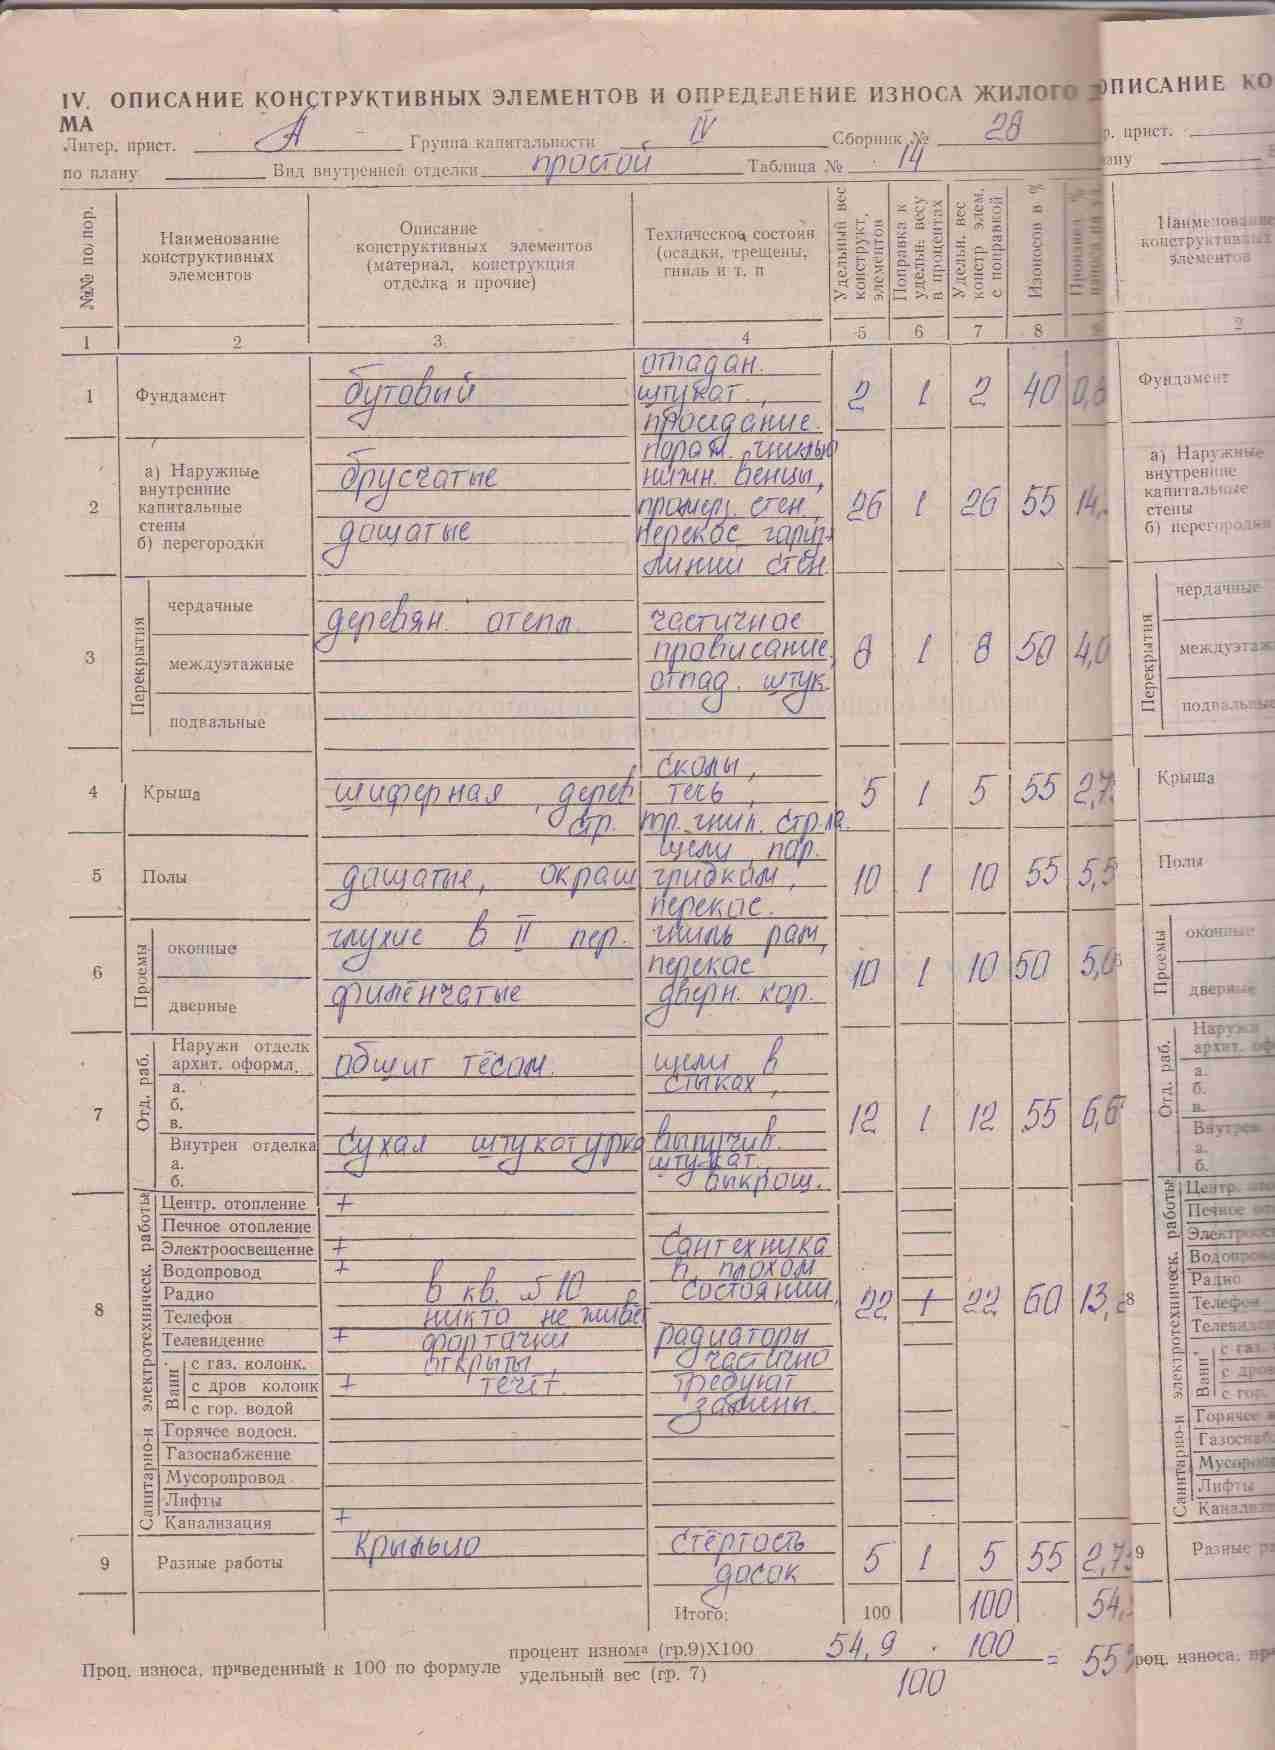 IV. ОПИСАНИЕ КОНСТРУКТИВНЫХ ЭЛЕМЕНТОВ И ОПРЕДЕЛЕНИЕ ИЗНОСА ЖИЛОГО
МА
Литер. прист. А Группа капитальности IV Сборник № 28
по плану Вид внутренней отделки простой Таблица № 14
№№ по пор.
Наименование конструктивных элементов
Описание конструктивных элементов (материал, конструкция отделка и прочие)
Техническое состоян (осадки, трещены, гниль и т. п
Удельный вес конструкт, элементов
Поправка к удельн. весу в процентах
Удельн. вес констр элем. с поправкой
Износов в %
1 2 3 4 5 6 7 8
1 Фундамент бутовый отпадан. штукат., проседание. 2 1 2 40 0,8
2 а) Наружные внутренние капитальные стены брусчатые
б) перегородки дощатые
пораж. гнилью
нижн. венцы,
промерз. стен,
перекос гориз.
линии стен.
26 1 26 55 14,
3 Перекрытия
чердачные деревян. отепл. частичное
междуэтажные провисание,
подвальные отпад. штук.
8 1 8 50 4,0
4 Крыша шиферная, дерев стр.
сколы,
течь,
гнил. стр-ла.
5 1 5 55 2,7
5 Полы дощатые, окраш
щели, пор.
грибком,
перекос.
10 1 10 55 5,5
6 Проемы
оконные глухие в II пер. гниль рам,
перекос
дверные филенчатые дверн. кор.
10 1 10 50 5,0
7 Отд. раб.
Наружи отделк архит. оформл. обшит тёсом. щели в
стыках,
а.
б.
в.
Внутрен отделка сухая штукатурка выпучив.
а. штукат.
б. выкрош.
12 1 12 55 6,6
8 Санитарно-и электротехническ. работы
Центр. отопление +
Печное отопление
Электроосвещение + Сантехника
Водопровод + в плохом
Радио в кв. №10 состоянии,
Телефон никто не живёт
Телевидение + форточки радиаторы
Ванн
с газ. колонк. открыты, частично
с дров колонк + течёт. требуют
с гор. водой замены.
Горячее водосн.
Газоснабжение
Мусоропровод
Лифты
Канализация +
22 1 22 60 13,
9 Разные работы крыльцо стёртость
досок
5 1 5 55 2,7
Итого: 100 100 54,
Проц. износа, приведенный к 100 по формуле
процент износа (гр.9)X100
удельный вес (гр. 7)
54,9 · 100
100
= 55%
ОПИСАНИЕ КО
р. прист.
ану
Наименование
конструктивных
элементов
2
Фундамент
а) Наружные
внутренние
капитальные
стены
б) перегородки
Перекрытия
чердачные
междуэтаж
подвальные
Крыша
Полы
Проемы
оконные
дверные
Отд. раб.
Наружи
архит. оформ
а.
б.
в.
Внутрен
а.
б.
8
Санитарно-и электротехническ. работы
Центр. ото
Печное ото
Электроос
Водопрово
Радио
Телефон
Телевиден
Ванн
с газ.
с дров
с гор.
Горячее в
Газоснаб
Мусоропр
Лифты
Канализа
9 Разные ра
роц. износа, пр